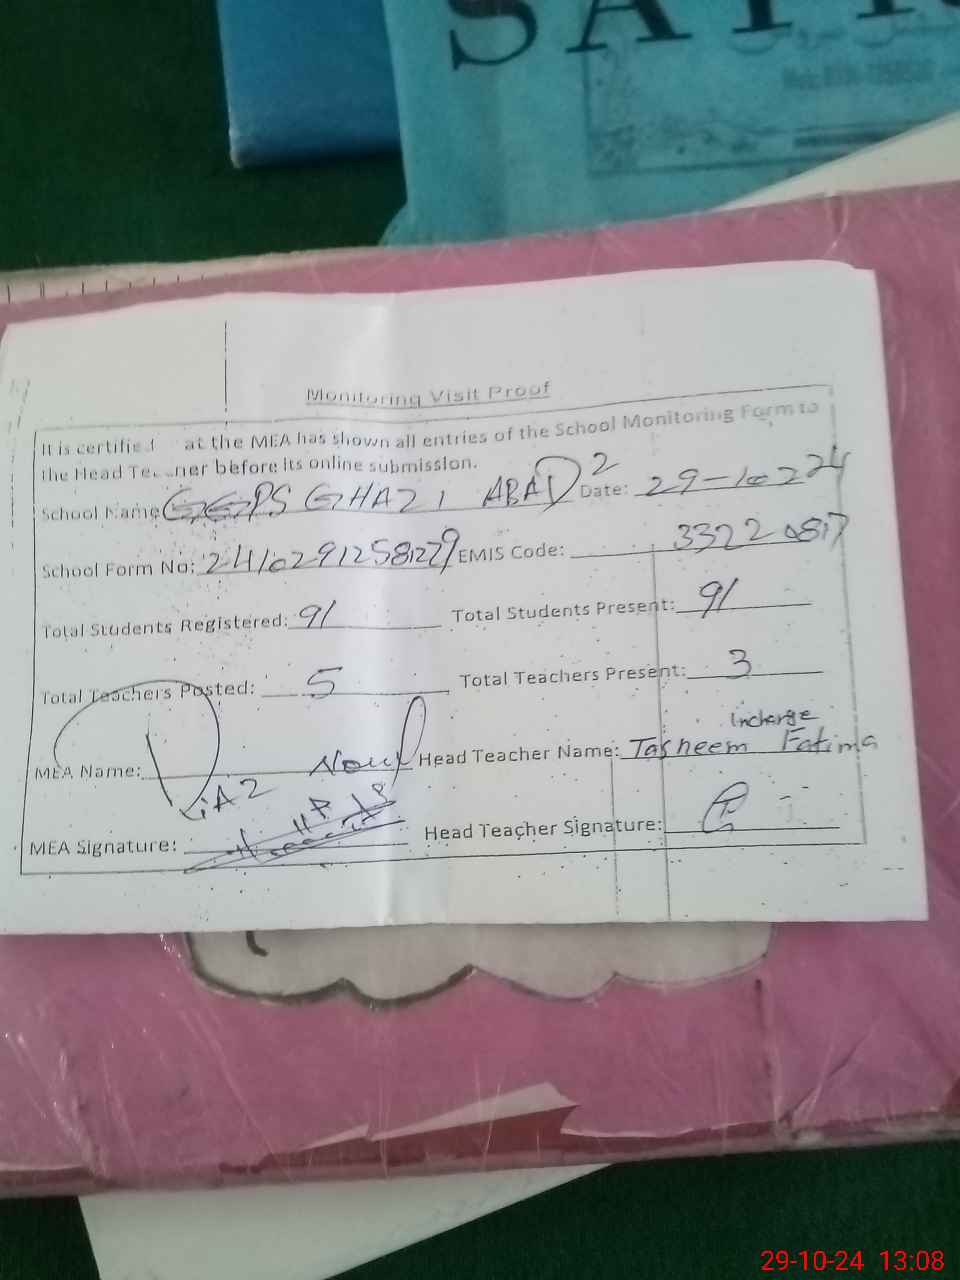 SATR
Monitoring Visit Proof
It is certified at the MEA has shown all entries of the School Monitoring Form to
the Head Te ner before its online submission.
School Name GGPS GHAZI ABAD 2 Date: 29-10-224
School Form No: 24102912581229 EMIS Code: 33220817
Total Students Registered: 91 Total Students Present: 91
Total Teachers Posted: 5 Total Teachers Present: 3
Incharge
MEA Name: Head Teacher Name: Tasneem Fatima
MEA Signature: Head Teacher Signature:
29-10-24 13:08